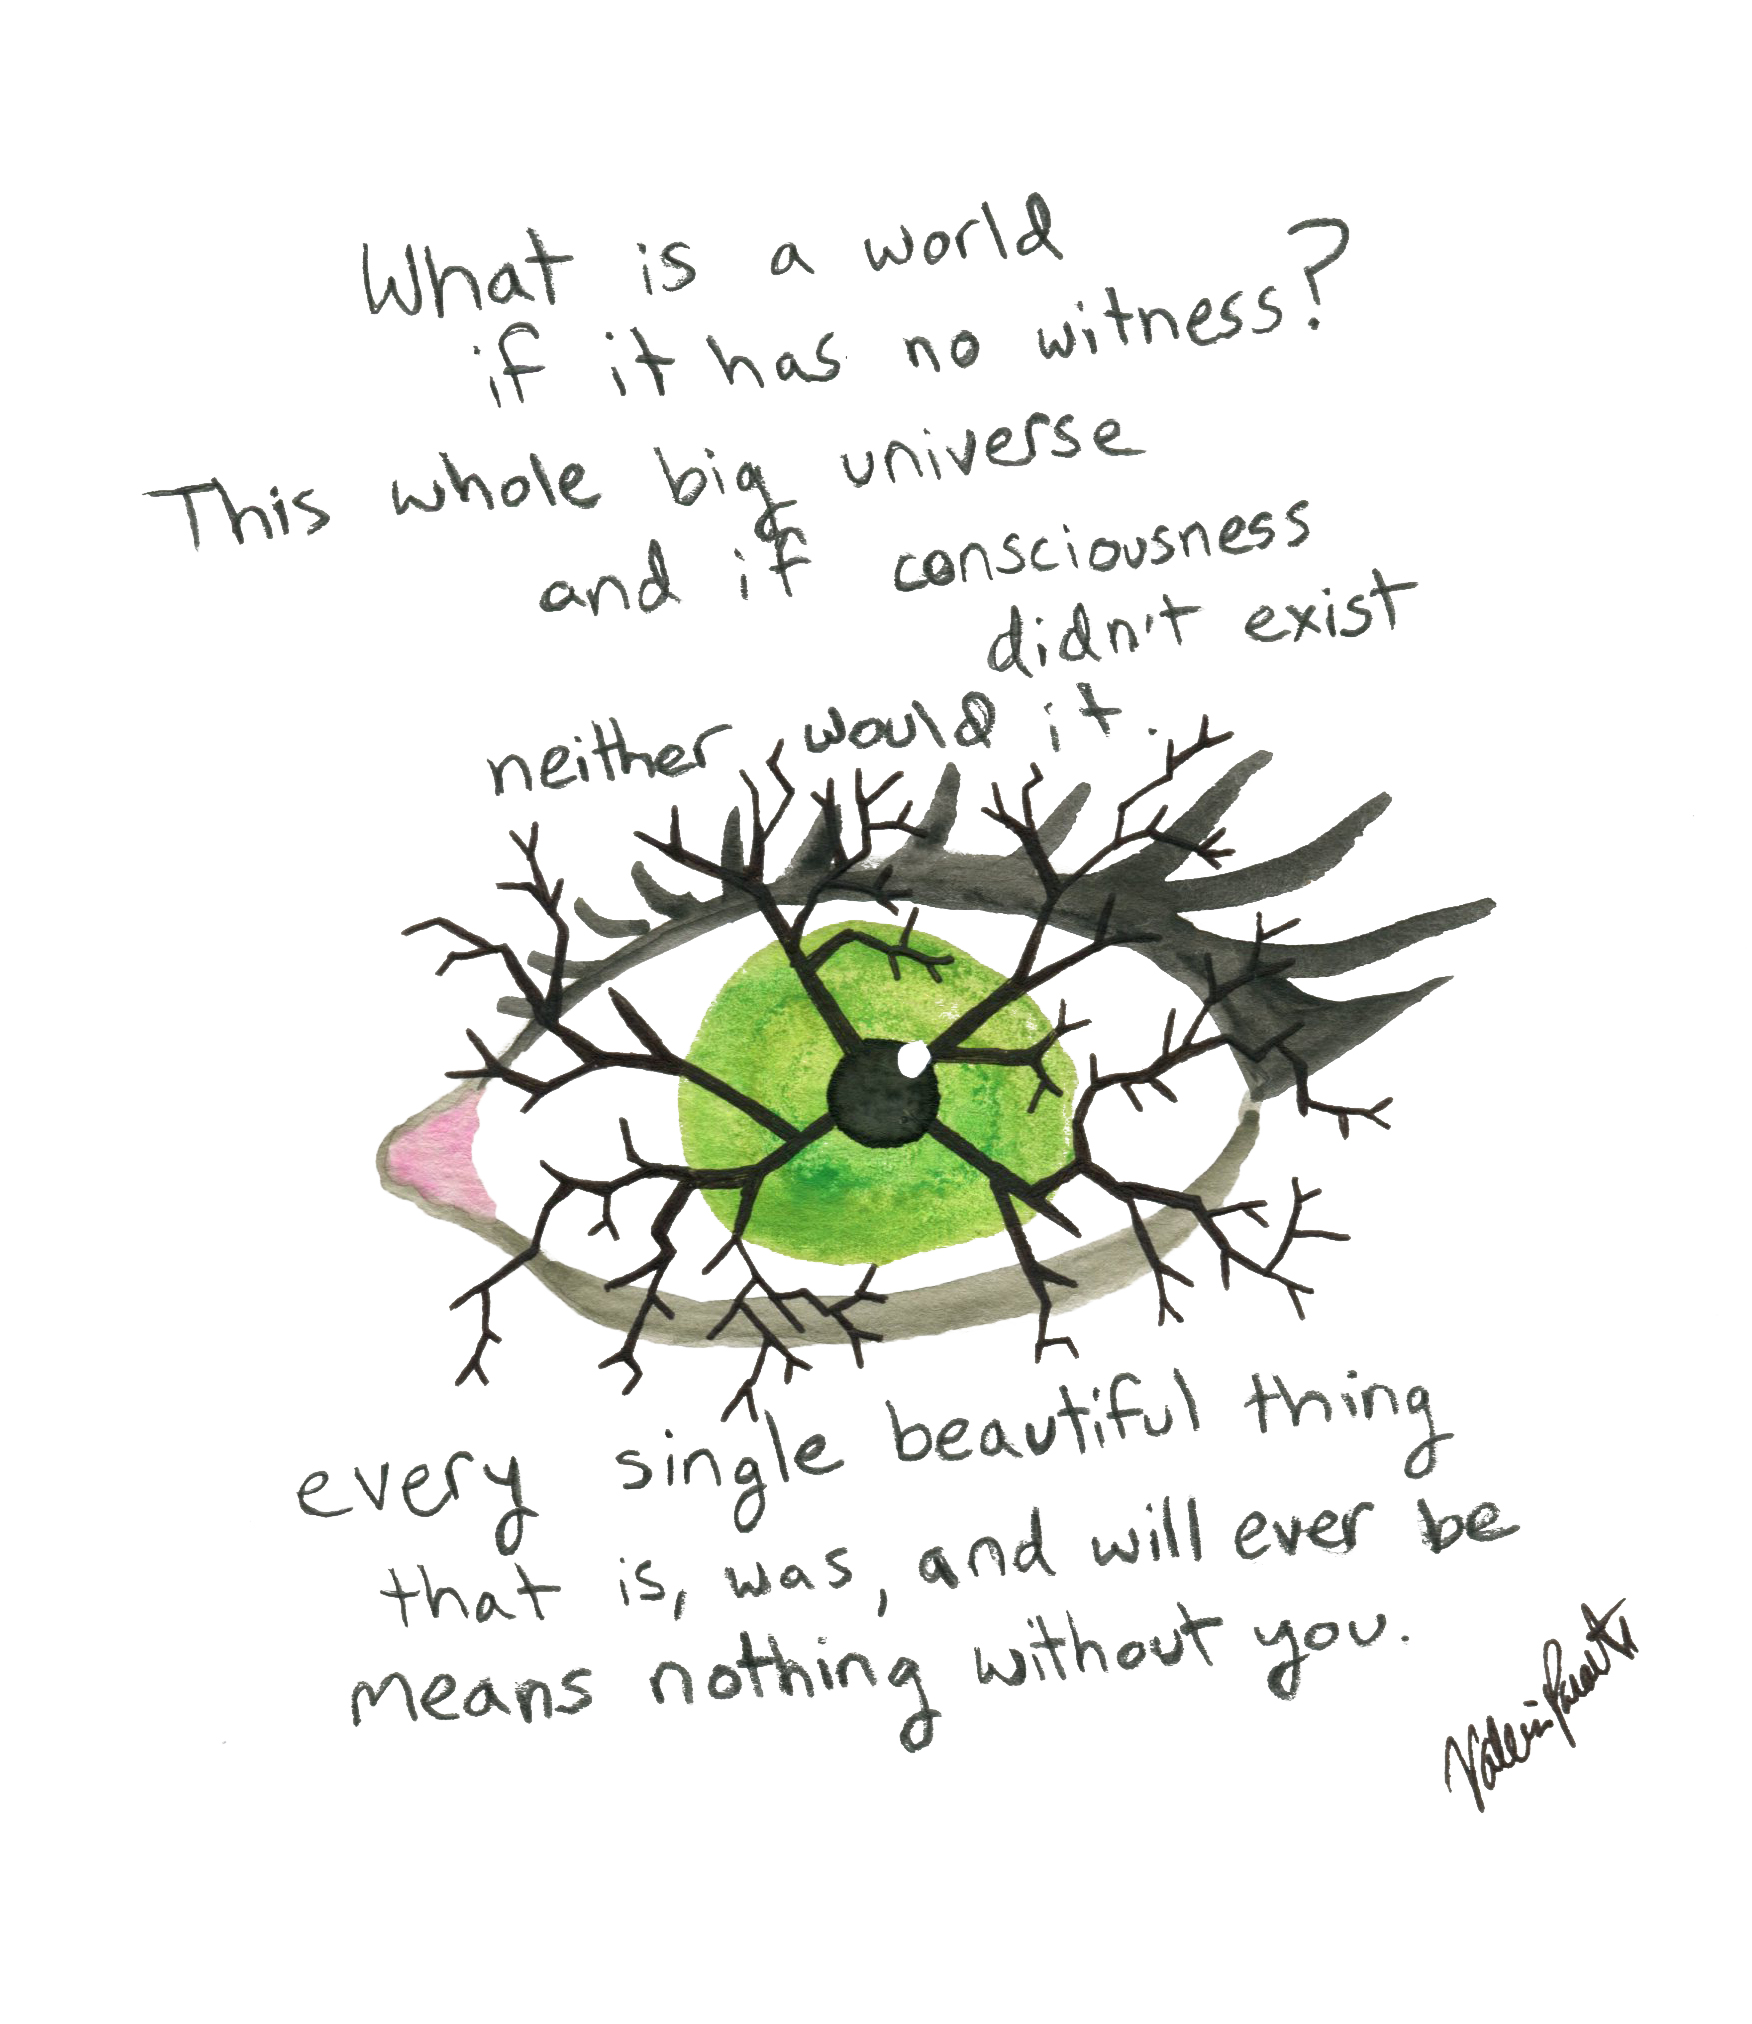 What is a world
if it has no witness?
This whole big universe
and if consciousness
didn't exist
neither would it.
every single beautiful thing
that is, was, and will ever be
means nothing without you.